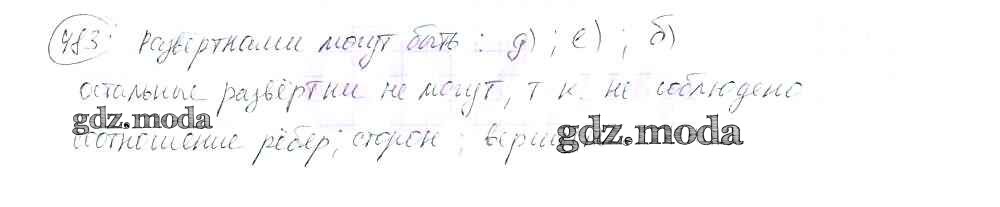 483 Развёртками могут быть: д); е); б)
остальные развёртки не могут, т к. не соблюдено
gdz.moda
соотношение рёбер; сторон; gdz.moda